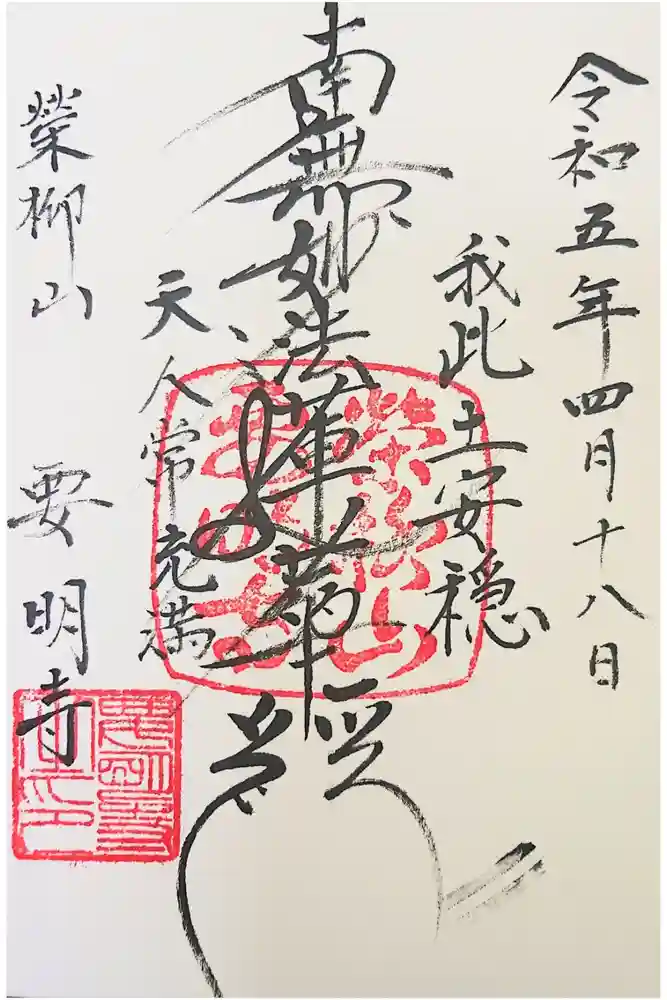 令和五年四月十八日
我此土安穏
南無妙法蓮華経
天人常充満
榮柳山 要明寺